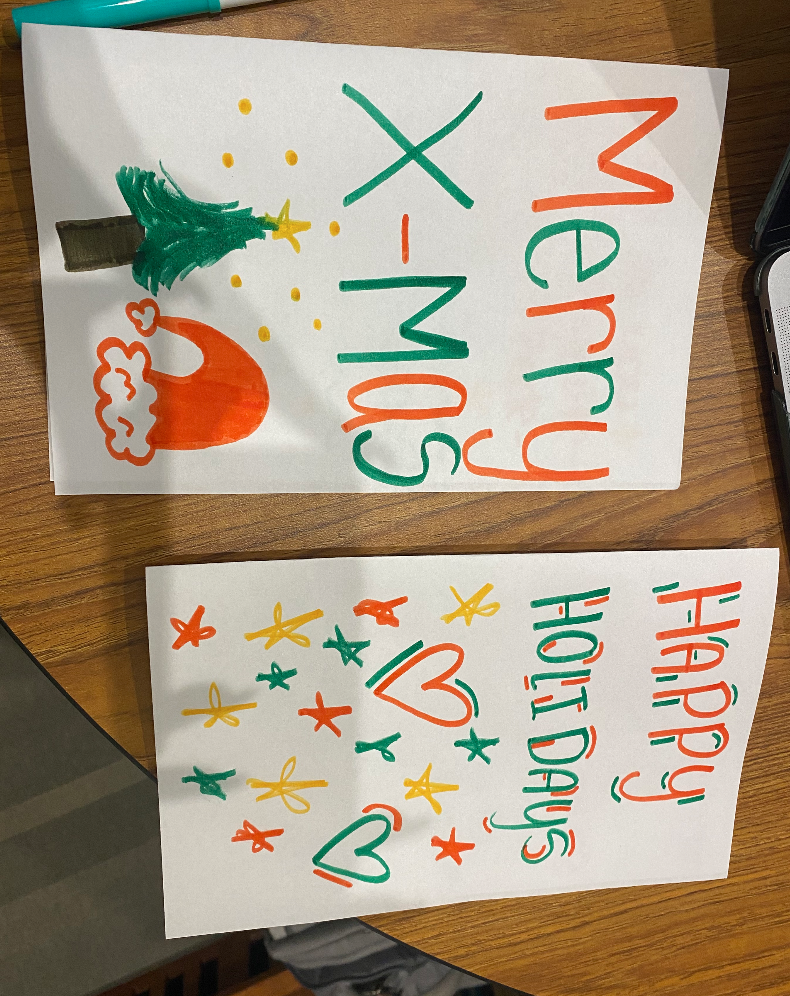 Merry
X-Mas
HAPPY
HOLIDAYS